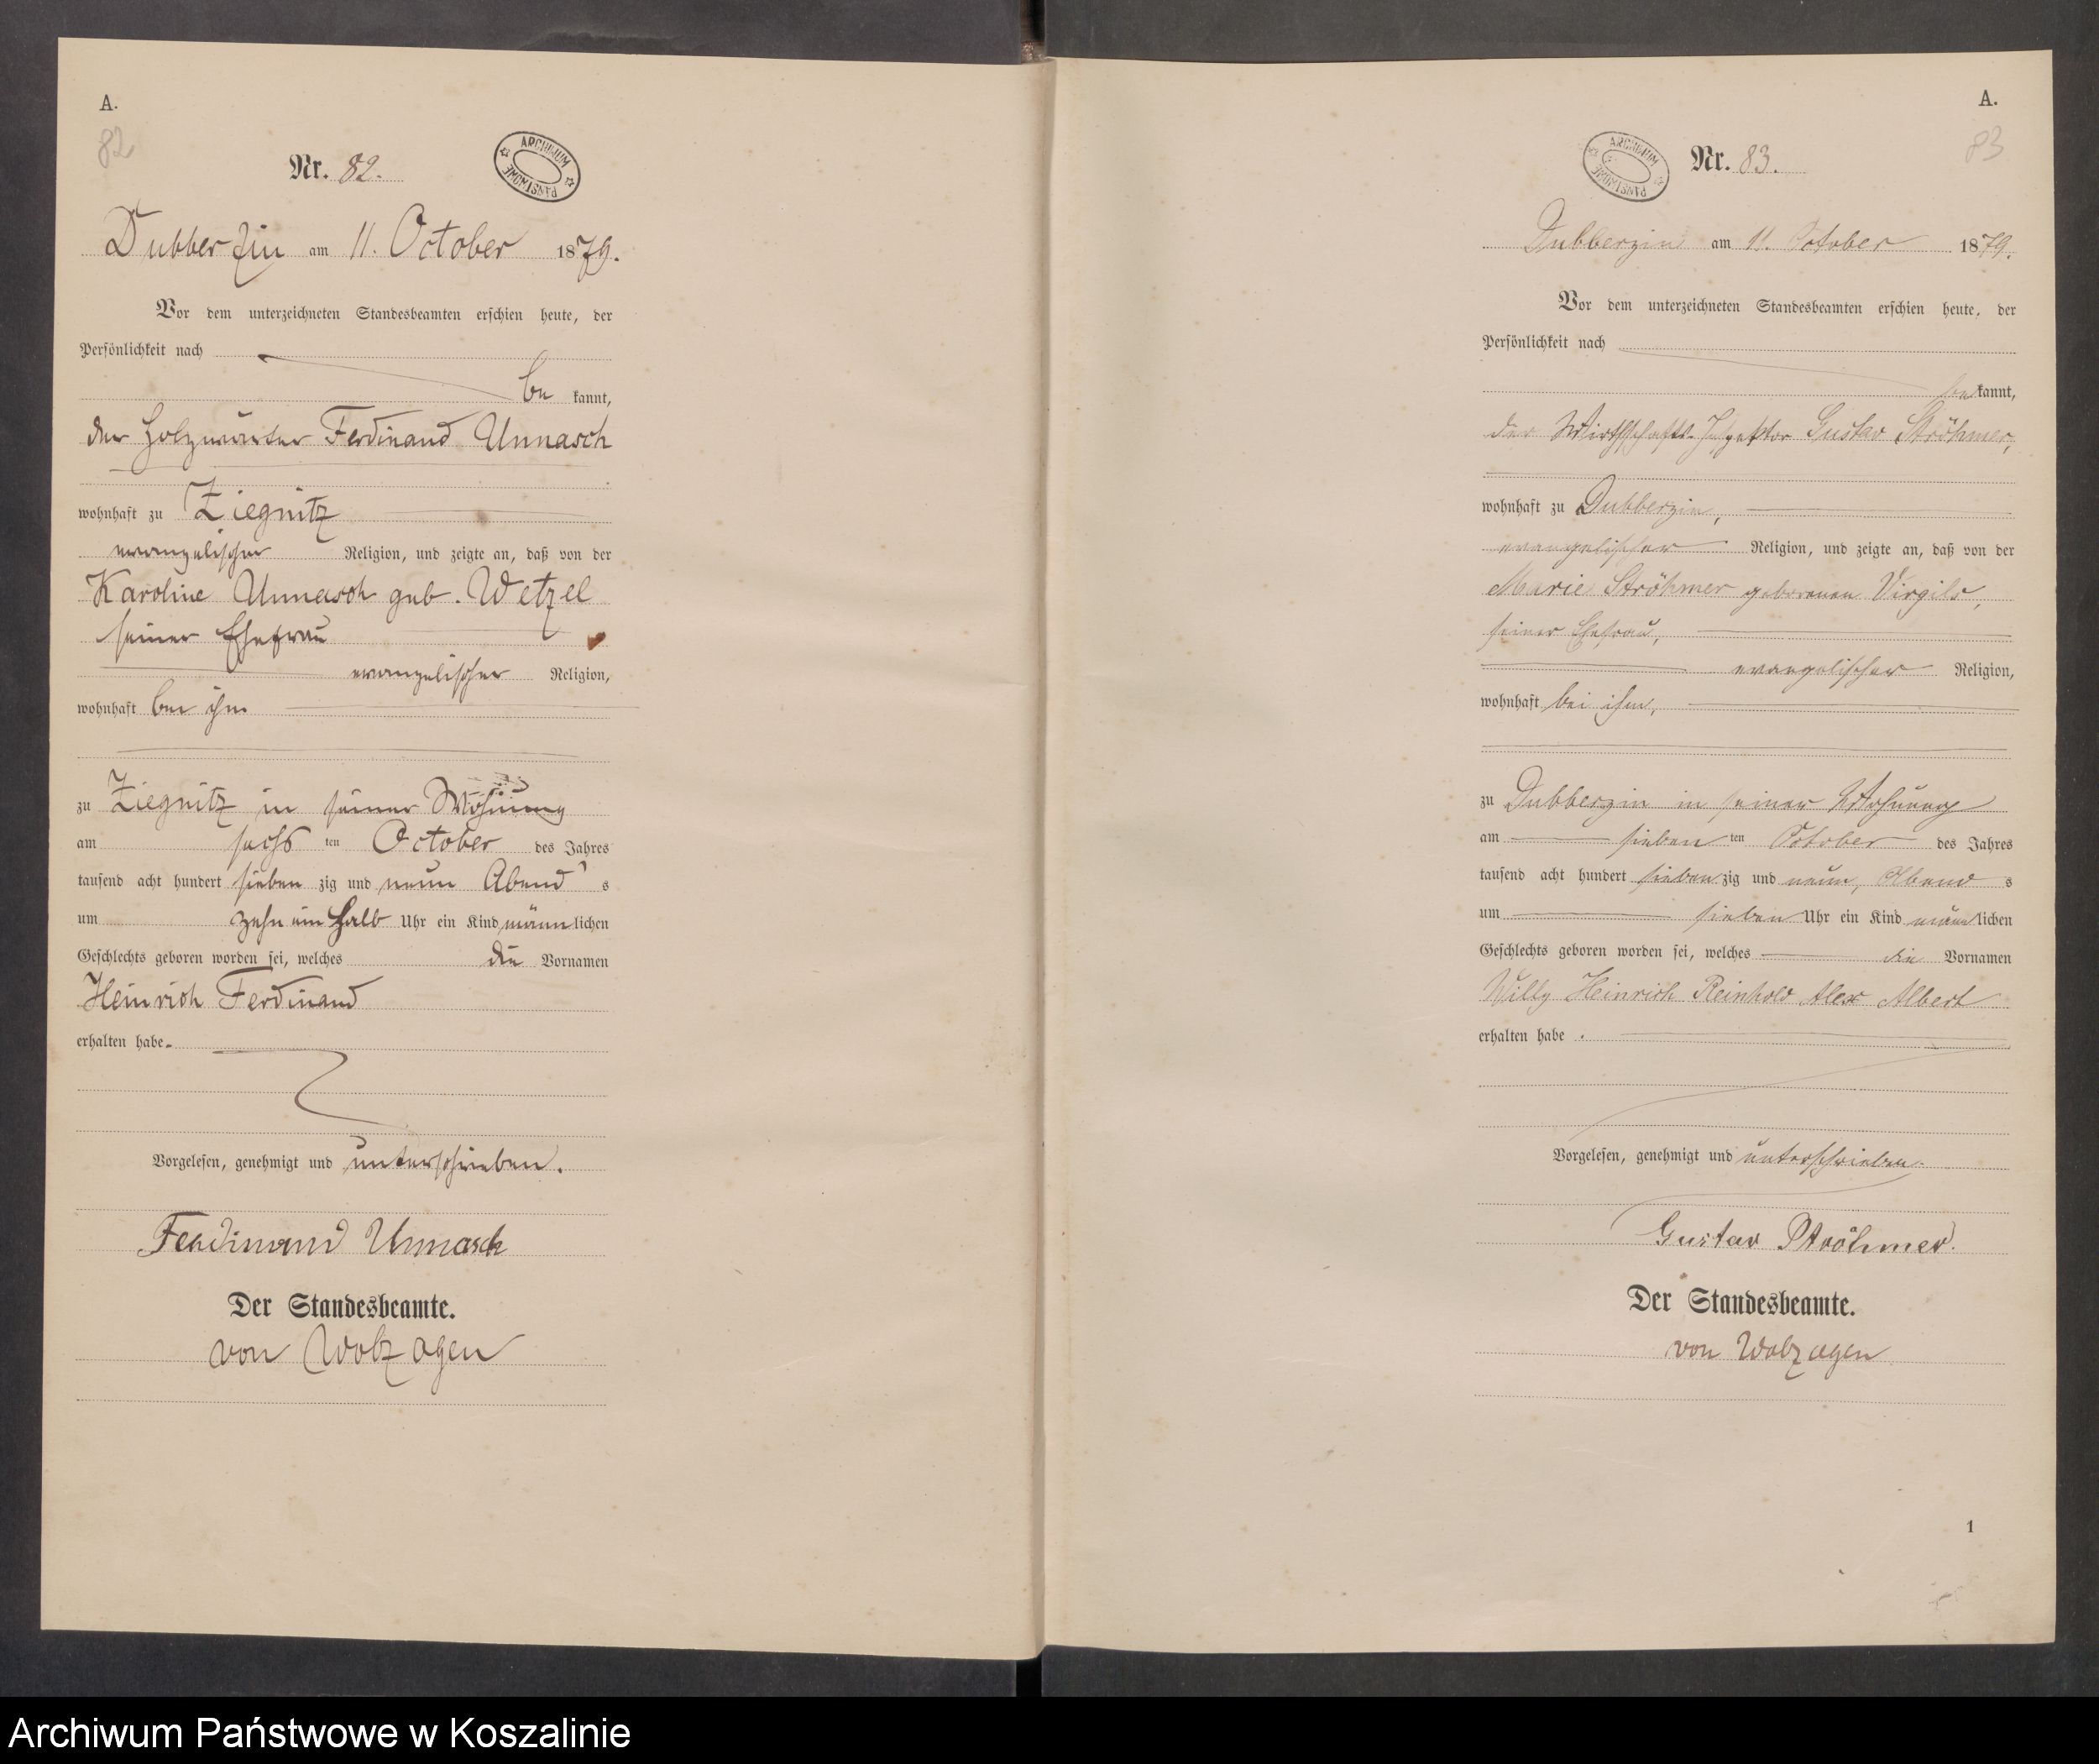 A.
82
Nr. 82.
ARCHIWUM PAŃSTWOWE
Dubberzin am 11. October 1879.
Vor dem unterzeichneten Standesbeamten erschien heute, der
Persönlichkeit nach
be kannt,
der Holzwärter Ferdinand Unnasch
wohnhaft zu Ziegnitz
evangelischer Religion, und zeigte an, daß von der
Karoline Unnasch geb. Wetzel
seiner Ehefrau
evangelischer Religion,
wohnhaft bei ihm
zu Ziegnitz in seiner Wohnung
am sechs ten October des Jahres
tausend acht hundert sieben zig und neun Abend s
um zehn ein halb Uhr ein Kind männ lichen
Geschlechts geboren worden sei, welches die Vornamen
Heinrich Ferdinand
erhalten habe.
Vorgelesen, genehmigt und unterschrieben.
Ferdinand Unnasch
Der Standesbeamte.
von Wolzogen
A.
83
ARCHIWUM PAŃSTWOWE
Nr. 83.
Dubberzin am 11. October 1879.
Vor dem unterzeichneten Standesbeamten erschien heute, der
Persönlichkeit nach
be kannt,
der Wirthschafts-Inspektor Gustav Ströhmer,
wohnhaft zu Dubberzin,
evangelischer Religion, und zeigte an, daß von der
Marie Ströhmer geborenen Virgils,
seiner Ehefrau,
evangelischer Religion,
wohnhaft bei ihm,
zu Dubberzin in seiner Wohnung
am sieben ten October des Jahres
tausend acht hundert sieben zig und neun, Abend s
um sieben Uhr ein Kind männ lichen
Geschlechts geboren worden sei, welches die Vornamen
Willy Heinrich Reinhold Alex Albert
erhalten habe.
Vorgelesen, genehmigt und unterschrieben.
Gustav Ströhmer.
Der Standesbeamte.
von Wolzogen
1
Archiwum Państwowe w Koszalinie